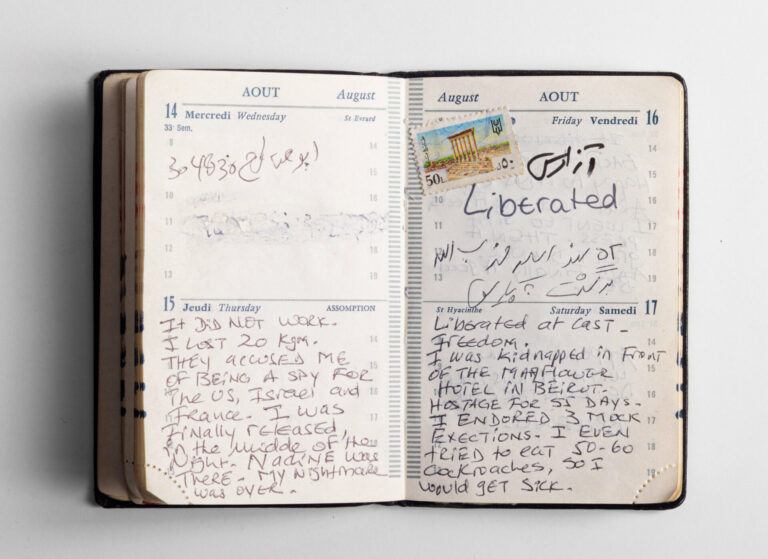 AOUT August
14 Mercredi Wednesday St Evrard
33e Sem.
8 14
15
10
11
12
13 19
15 Jeudi Thursday ASSOMPTION
It DID NOT WORK.
I LOST 20 Kgm.
THEY ACCUSED ME
OF BEING A SPY FOR
The US, ISrael and
France. I was
Finally released,
in the middle of the
Night. Nadine was
There. My Nightmare
was over.
August AOUT
Friday Vendredi 16
50L
آزادی
Liberated
روز اسیر حزب الله
برگشت به پاریس
St Hyacinthe Saturday Samedi 17
Liberated at last_
Freedom.
I was kidnapped in Front
OF THE MAYFLOWER
HOTEL IN BEIRUT.
HOSTAGE FOR 55 DAYS.
I ENDORED 3 MOCK
EXECTIONS. I EVEN
tried to eat 50-60
Cockroaches, so I
would get SICK.